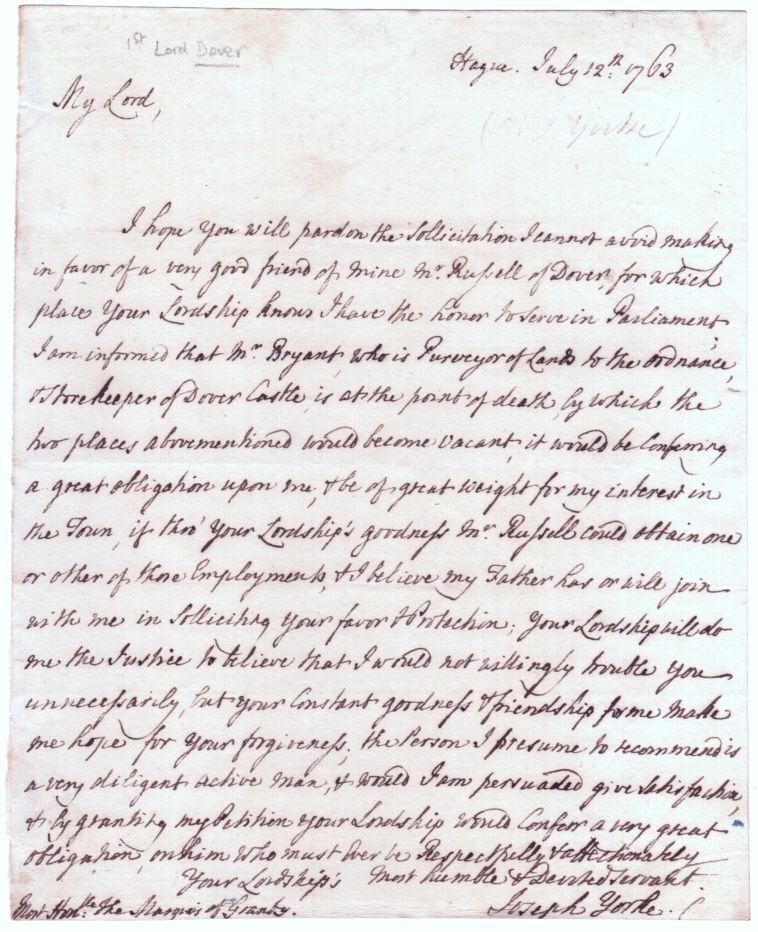 1st Lord Dover
Hague. July 12th: 1763
My Lord,
(Sir J. Yorke)
I hope You will pardon the Sollicitation I cannot avoid making
in favor of a very good friend of mine Mr. Russell of Dover, for which
place Your Lordship knows I have the honor to serve in Parliament;
I am informed that Mr. Bryant, who is Purveyor of Lands to the ordnance,
& Storekeeper of Dover Castle, is at the point of death, by which the
two places abovementioned would become vacant, it would be Conferring
a great obligation upon me, & be of great weight for my interest in
the Town, if thro' Your Lordship's goodness Mr. Russell could obtain one
or other of those Employments, & I believe my Father has or will join
with me in Solliciting Your favor & Protection; Your Lordship will do
me the Justice to believe that I would not willingly trouble you
unnecessarily, but your Constant goodness & friendship for me make
me hope for Your forgiveness; the Person I presume to recommend is
a very diligent active Man, & would I am persuaded give Satisfaction,
& by granting my Petition Your Lordship would Conferr a very great
obligation, on him who must Ever be Respectfully & affectionately
Your Lordship's Most humble & Devoted Servant.
Most Honble. The Marquis of Granby. Joseph Yorke.